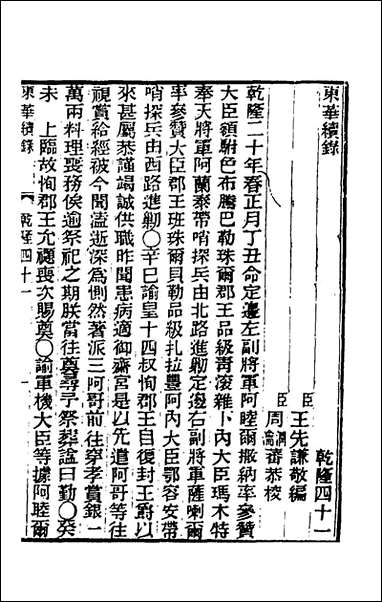 東華續錄
乾隆四十一
臣王先謙敬編
臣周瀹蕃恭校
乾隆二十年春正月丁丑命定邊左副將軍阿睦爾撒納率參贊
大臣額駙色布騰巴勒珠爾郡王品級靑滾雜卜內大臣瑪木特
奉天將軍阿蘭泰帶哨探兵由北路進勦定邊右副將軍薩喇爾
率參贊大臣郡王班珠爾貝勒品級扎拉豐阿內大臣鄂容安帶
哨探兵由西路進勦○辛巳諭皇十四叔恂郡王自復封王爵以
來甚屬恭謹竭誠供職昨聞患病適御齋宮是以先遣阿哥等往
視賞給經被今聞溘逝深為惻然著派三阿哥前往穿孝賞銀一
萬兩料理喪務俟逾祭祀之期朕當往奠尋予祭葬謚曰勤○癸
未 上臨故恂郡王允禵喪次賜奠○諭軍機大臣等據阿睦爾
東華續錄 乾隆四十一 一